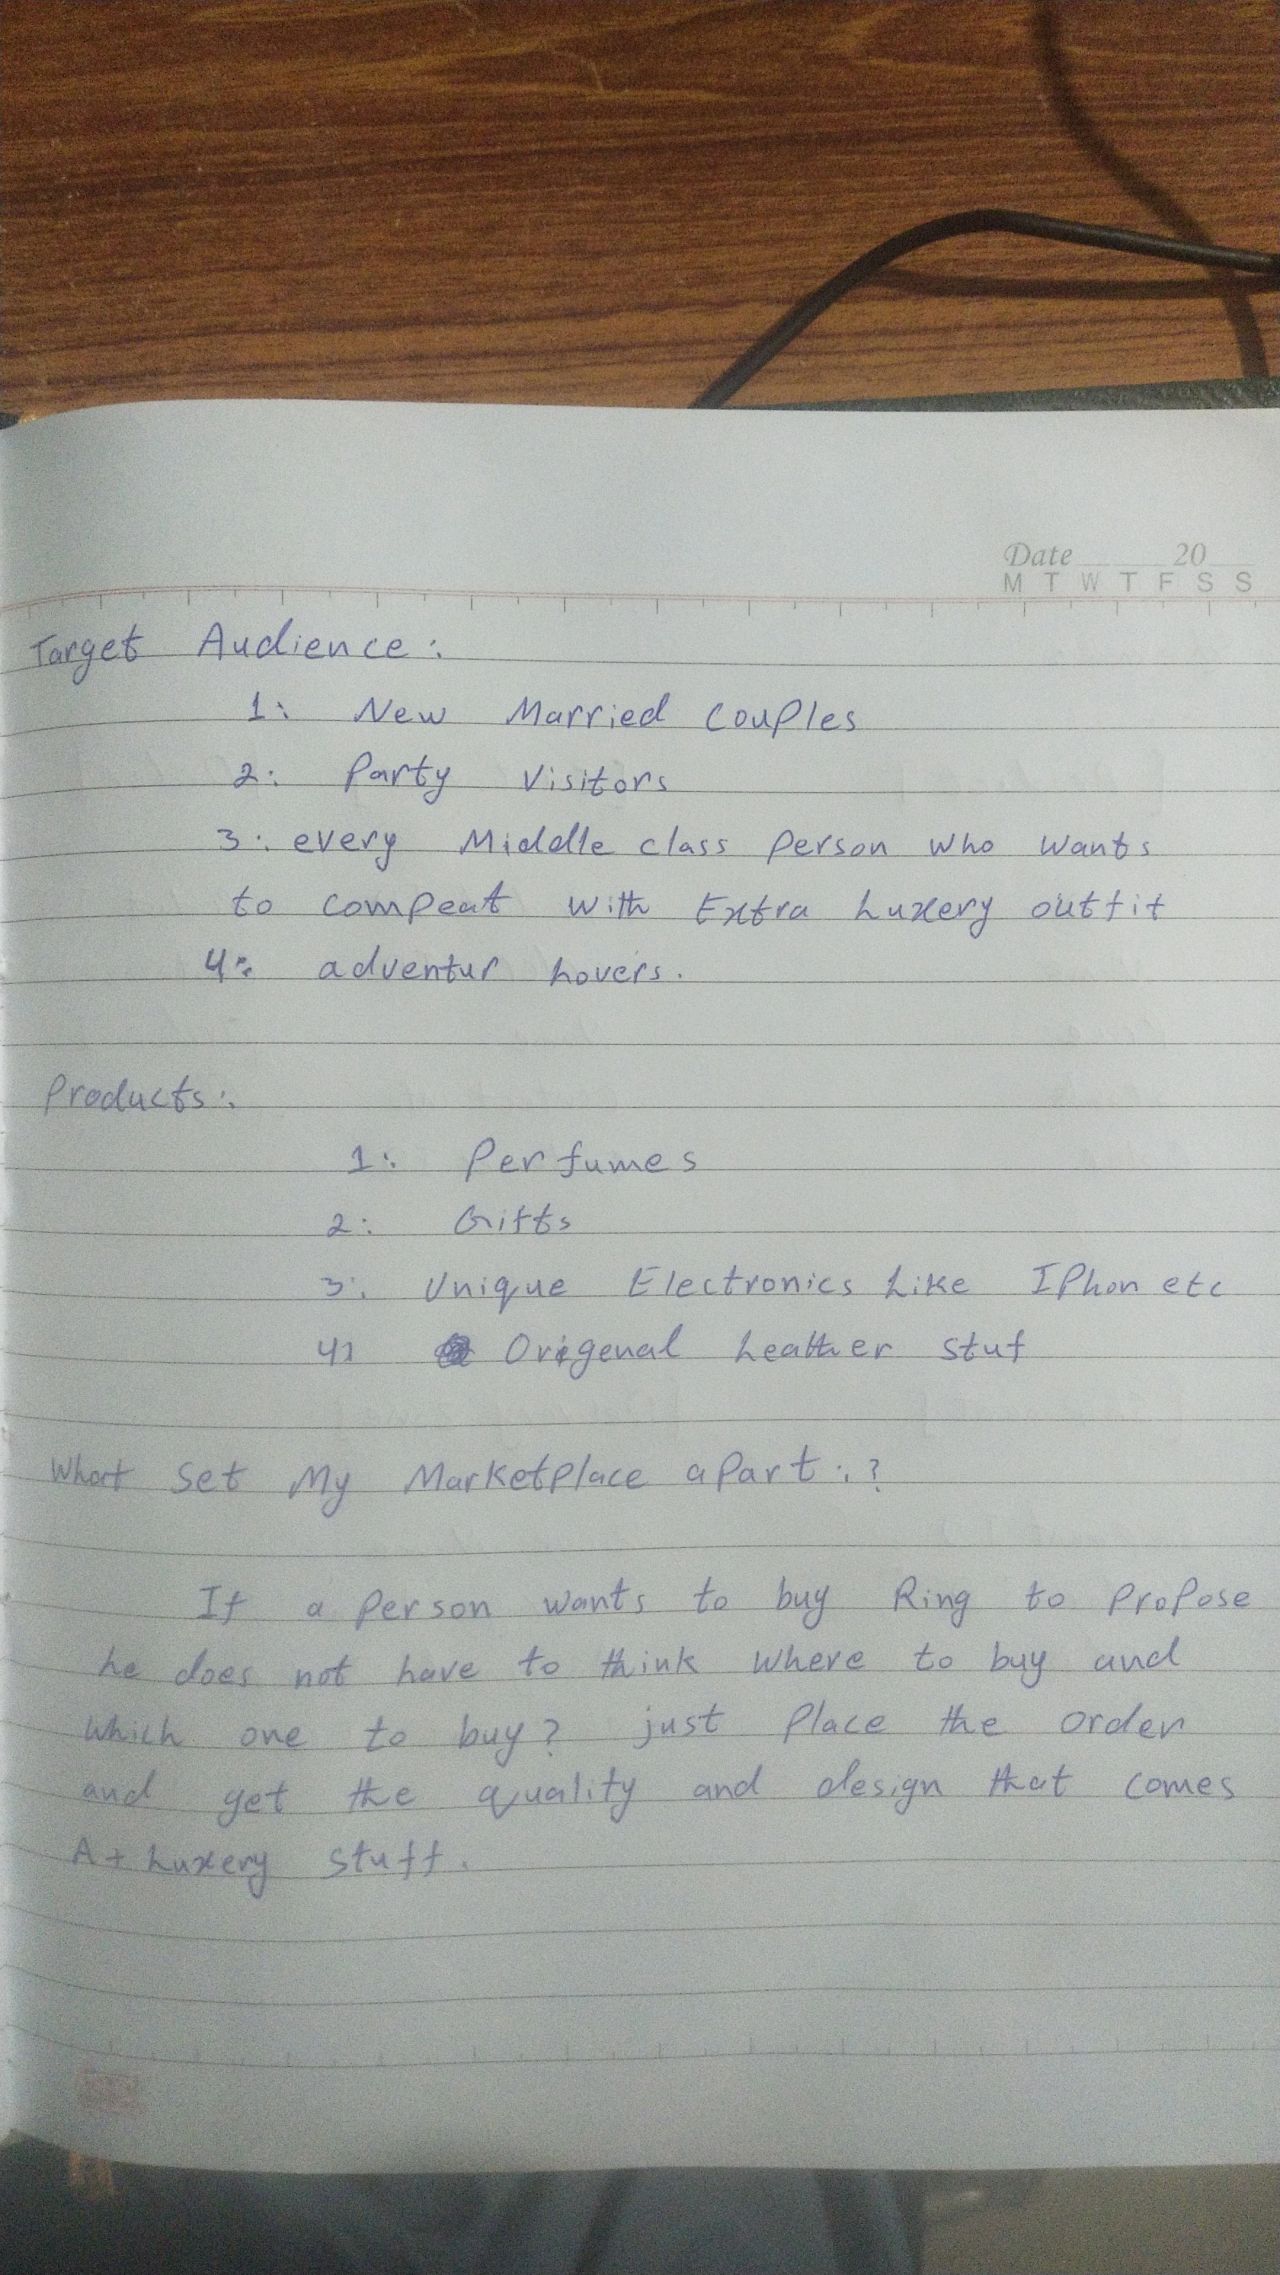 Date 20
M T W T F S S
Target Audience:
1: New Married Couples
2: Party Visitors
3: every Middle class Person who wants
to compeat with Extra Luxery outfit
4: adventur Lovers.
Products:
1: Perfumes
2: Gifts
3: Unique Electronics Like IPhon etc
4: Origenal Leather stuf
What set My Marketplace apart:?
If a Person wants to buy Ring to Propose
he does not have to think where to buy and
which one to buy? just Place the order
and get the quality and design that comes
A+ Luxery stuff.